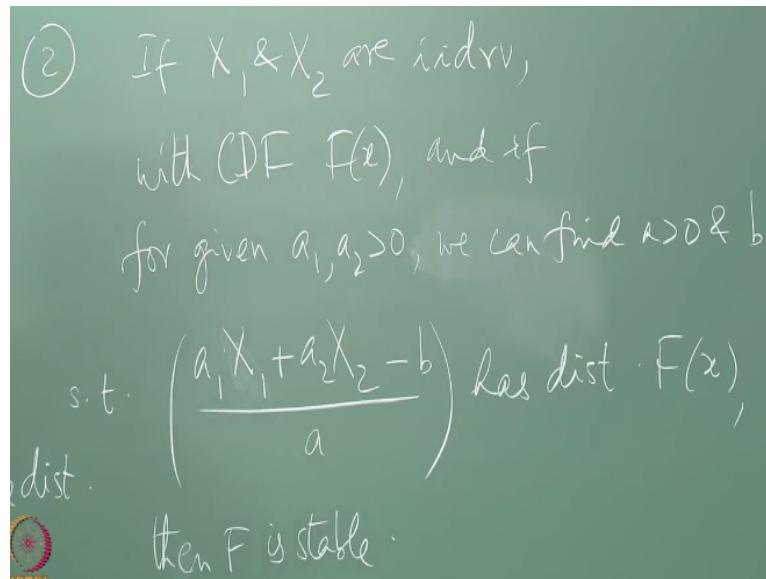 ② If X₁ & X₂ are iidrv,
with CDF F(x), and if
for given a₁, a₂ > 0, we can find a > 0 & b
s.t. (a₁X₁ + a₂X₂ - b / a) has dist. F(x),
dist.
then F is stable.